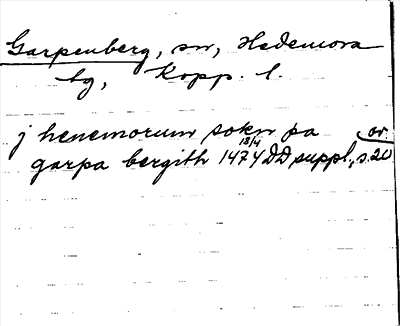 Garpenberg, sn, Hedemora
bg, Kopp. l.
j henemorum sokn pa or
13/4
garpa bergith 1474 DD suppl., s. 20